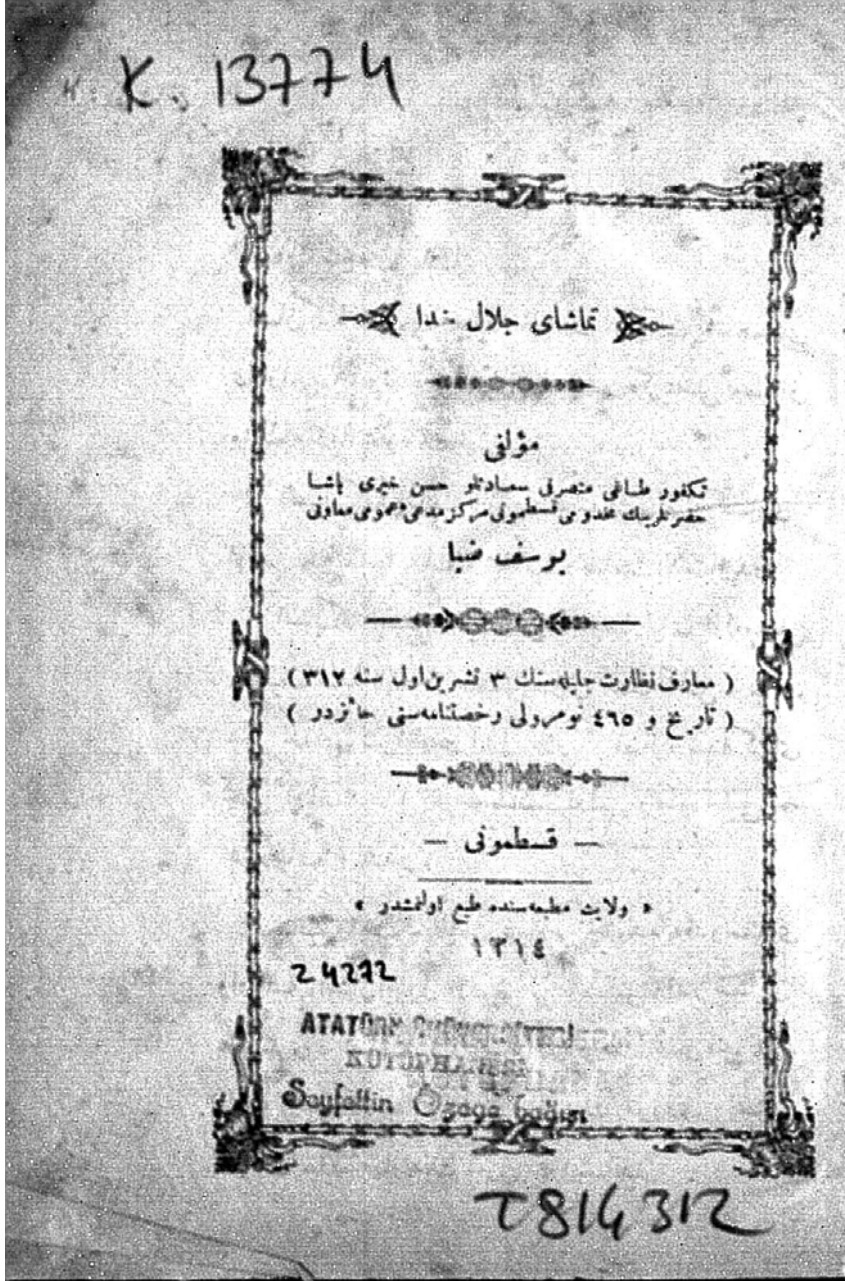 K. 13774
تماشای جلال خدا
مؤلفی
تكفور طاغی متصرفی سعادتلو حسن خیری پاشا
حضرتلرینك مخدومی قسطمونی مركز مدعیء عمومی معاونی
یوسف ضیا
( معارف نظارت جلیله‌سنك ٣ تشرین اول سنه ٣١٢ )
( تاریخ و ٤٦٥ نومرولی رخصتنامه‌سنی حائزدر )
— قسطمونی —
« ولایت مطبعه‌سنده طبع اولنمشدر »
١٣١٤
24272
ATATÜRK ÜNİVERSİTESİ
KÜTÜPHANESİ
Seyfettin Özege bağışı
T814312